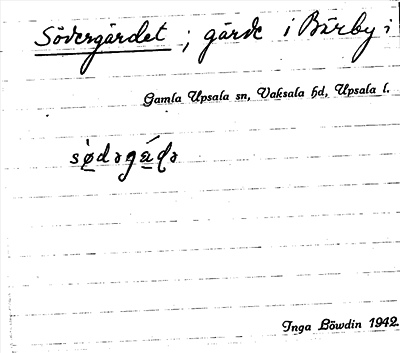 Södergärdet ; gärde i Bärby i
Gamla Upsala sn, Vaksala hd, Upsala l.
sø̀dǝgáɖǝ
Inga Löwdin 1942.